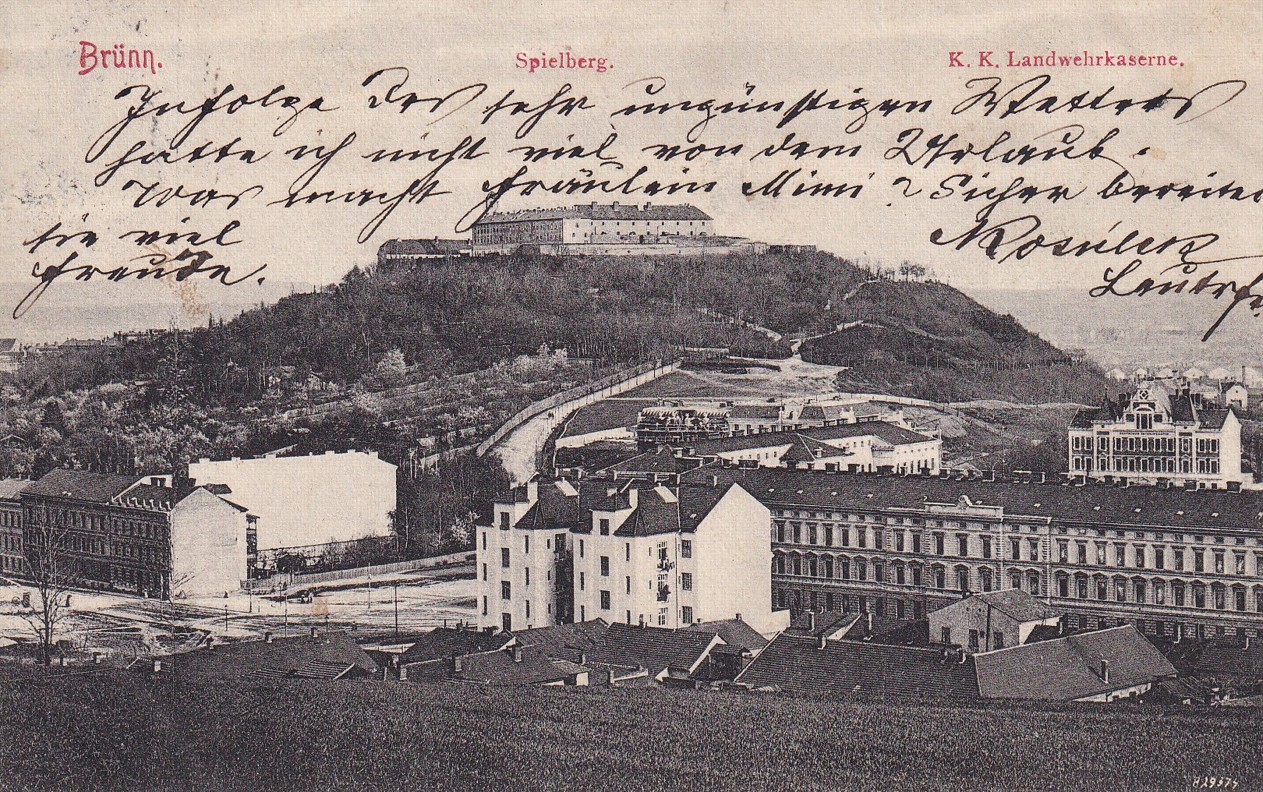 Brünn. Spielberg. K. K. Landwehrkaserne.
Infolge des sehr ungünstigen Wetters
hatte ich nicht viel von dem Urlaub.
Was macht Fräulein Mimi? Sicher bereitet
sie viel
Freude.